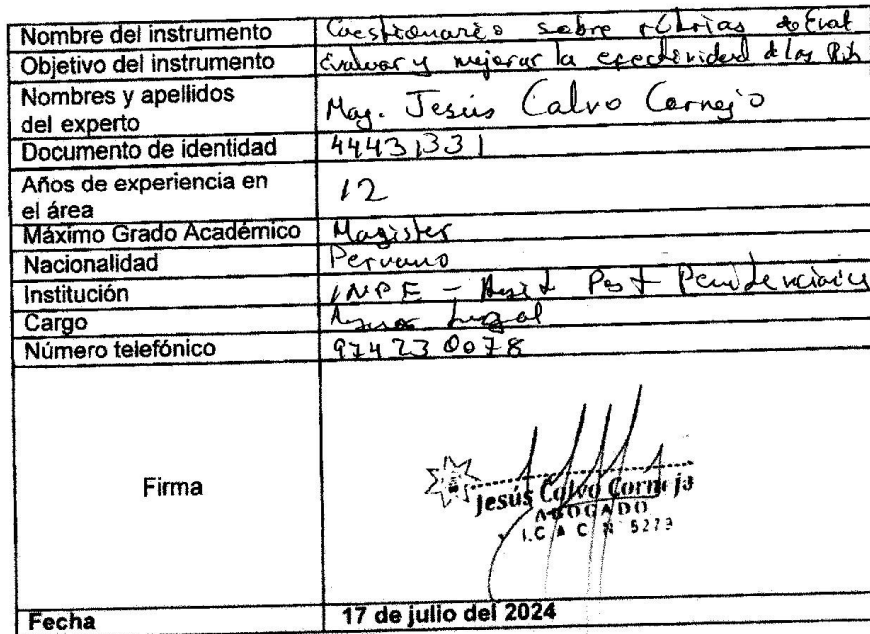 Nombre del instrumento Cuestionario sobre rúbricas de Eval
Objetivo del instrumento Evaluar y mejorar la efectividad de las Rúb
Nombres y apellidos
del experto Mag. Jesús Calvo Cornejo
Documento de identidad 44431331
Años de experiencia en
el área 12
Máximo Grado Académico Magister
Nacionalidad Peruano
Institución INPE - Asist Post Penitenciario
Cargo Asesor Legal
Número telefónico 974230078
Firma
Jesús Calvo Cornejo
ABOGADO
I.C A C N° 5273
Fecha 17 de julio del 2024